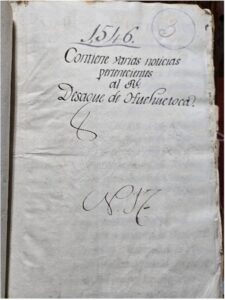 1546.
3
Contiene varias noticias
pertenecientes
al Rl.
Desague de Huehuetoca.
N. 17